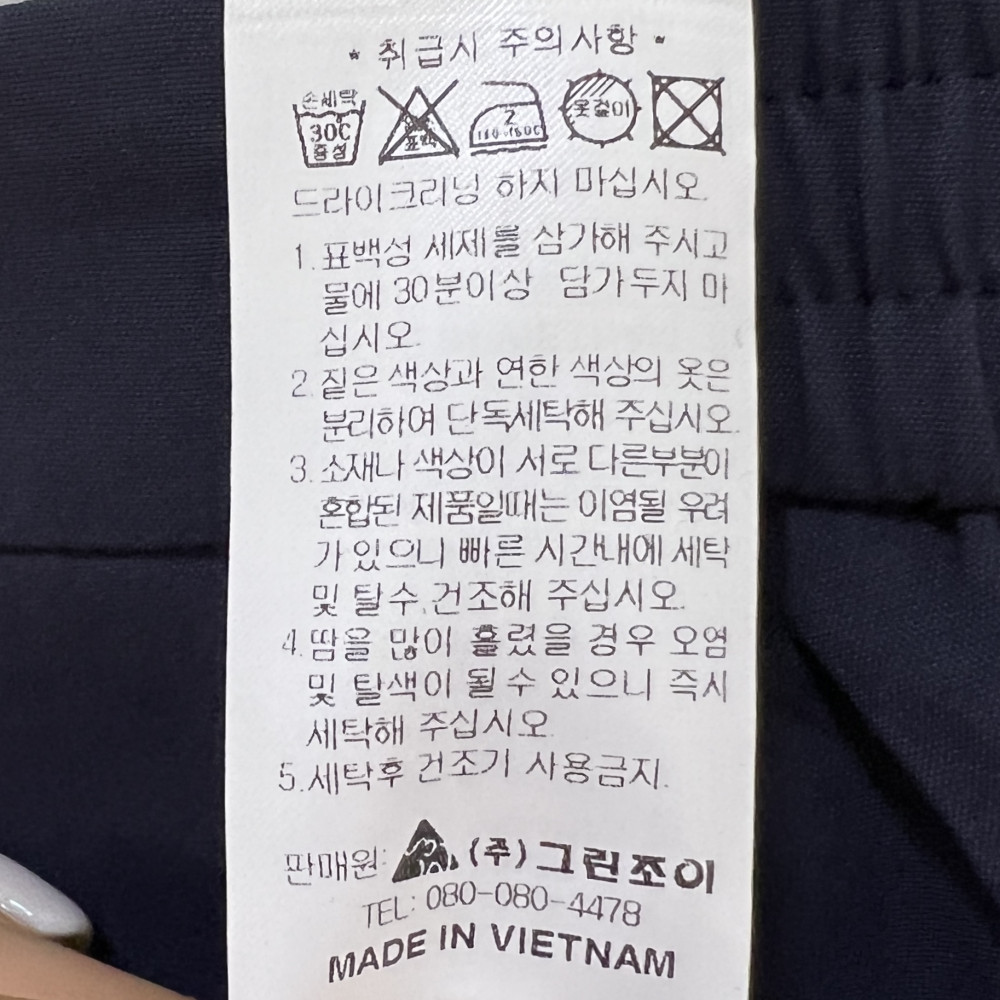 * 취급시 주의사항 *
손세탁
30C
중성
표백
2
180~150C
옷걸이
드라이크리닝 하지 마십시오.
1. 표백성 세제를 삼가해 주시고
물에 30분이상 담가두지 마
십시오.
2. 짙은 색상과 연한 색상의 옷은
분리하여 단독세탁해 주십시오.
3. 소재나 색상이 서로 다른부분이
혼합된 제품일때는 이염될 우려
가 있으니 빠른 시간내에 세탁
및 탈수, 건조해 주십시오.
4. 땀을 많이 흘렸을 경우 오염
및 탈색이 될 수 있으니 즉시
세탁해 주십시오.
5. 세탁후 건조기 사용금지.
판매원: (주)그린조이
TEL: 080-080-4478
MADE IN VIETNAM